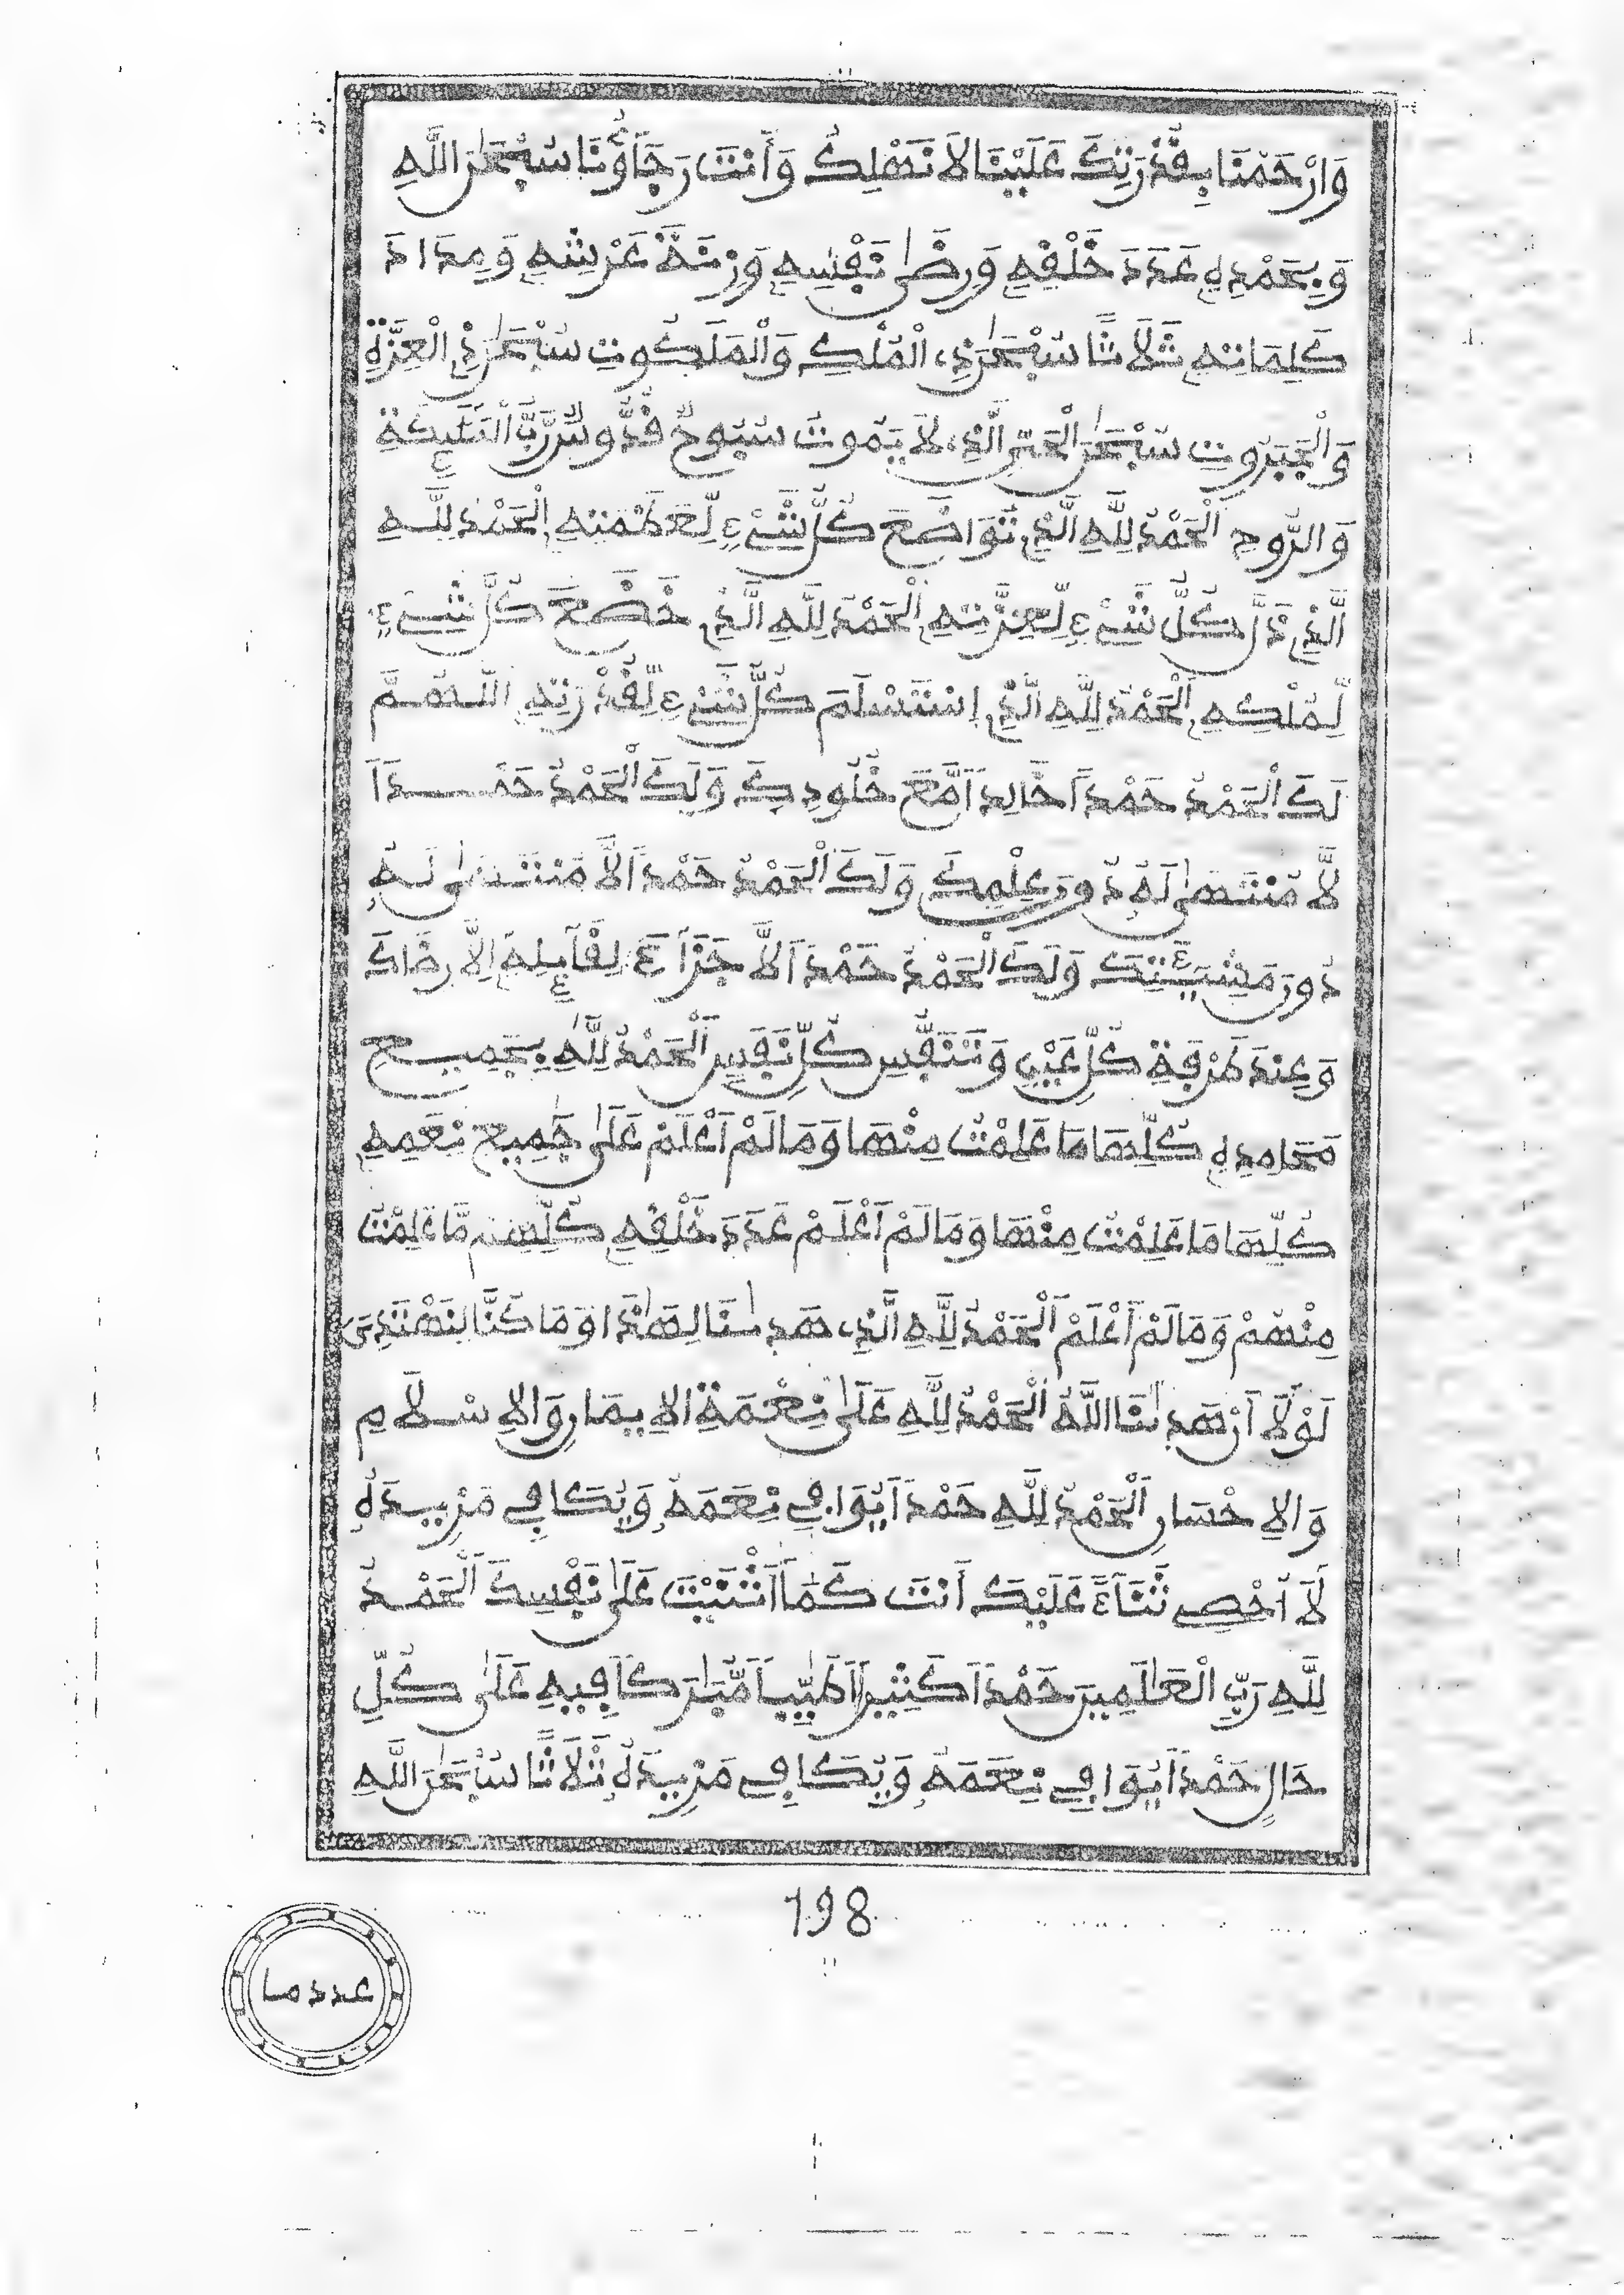 وَارْحَمْنَا بِقُدْرَتِكَ عَلَيْنَا لَا نَهْلِكُ وَأَنتَ رَجَاؤُنَا سُبْحَٰنَ اللَّهِ
وَبِحَمْدِهِ عَدَدَ خَلْقِهِ وَرِضَىٰ نَفْسِهِ وَزِنَةَ عَرْشِهِ وَمِدَادَ
كَلِمَاتِهِ ثَلَاثًا سُبْحَٰنَ ذِي الْمُلْكِ وَالْمَلَكُوتِ سُبْحَٰنَ ذِي الْعِزَّةِ
وَالْجَبَرُوتِ سُبْحَٰنَ الْحَيِّ الَّذِي لَا يَمُوتُ سُبُّوحٌ قُدُّوسٌ رَبُّ الْمَلَٰئِكَةِ
وَالرُّوحِ الْحَمْدُ لِلَّهِ الَّذِي تَوَاضَعَ كُلُّ شَيْءٍ لِّعَظَمَتِهِ الْحَمْدُ لِلَّهِ
الَّذِي ذَلَّ كُلُّ شَيْءٍ لِّعِزَّتِهِ الْحَمْدُ لِلَّهِ الَّذِي خَضَعَ كُلُّ شَيْءٍ
لِّمُلْكِهِ الْحَمْدُ لِلَّهِ الَّذِي اِسْتَسْلَمَ كُلُّ شَيْءٍ لِّقُدْرَتِهِ اللَّهُمَّ
لَكَ الْحَمْدُ حَمْدًا خَالِدًا مَّعَ خُلُودِكَ وَلَكَ الْحَمْدُ حَمْدًا
لَّا مُنْتَهَىٰ لَهُ دُونَ عِلْمِكَ وَلَكَ الْحَمْدُ حَمْدًا لَّا مُنْتَهَىٰ لَهُ
دُونَ مَشِيئَتِكَ وَلَكَ الْحَمْدُ حَمْدًا لَّا جَزَاءَ لِقَائِلِهِ إِلَّا رِضَاكَ
وَعِندَ طَرْفَةِ كُلِّ عَيْنٍ وَتَنَفُّسِ كُلِّ نَفَسٍ الْحَمْدُ لِلَّهِ بِجَمِيعِ
مَحَامِدِهِ كُلِّهَا مَا عَلِمْتُ مِنْهَا وَمَا لَمْ أَعْلَمْ عَلَىٰ جَمِيعِ نِعَمِهِ
كُلِّهَا مَا عَلِمْتُ مِنْهَا وَمَا لَمْ أَعْلَمْ عَدَدَ خَلْقِهِ كُلِّهِم مَّا عَلِمْتُ
مِنْهُمْ وَمَا لَمْ أَعْلَمْ الْحَمْدُ لِلَّهِ الَّذِي هَدَىٰنَا لِهَٰذَا وَمَا كُنَّا لِنَهْتَدِيَ
لَوْلَا أَنْ هَدَىٰنَا اللَّهُ الْحَمْدُ لِلَّهِ عَلَىٰ نِعْمَةِ الْإِيمَانِ وَالْإِسْلَامِ
وَالْإِحْسَانِ الْحَمْدُ لِلَّهِ حَمْدًا يُوَافِي نِعَمَهُ وَيُكَافِي مَزِيدَهُ
لَا أُحْصِي ثَنَاءً عَلَيْكَ أَنتَ كَمَا أَثْنَيْتَ عَلَىٰ نَفْسِكَ الْحَمْدُ
لِلَّهِ رَبِّ الْعَٰلَمِينَ حَمْدًا كَثِيرًا طَيِّبًا مُّبَٰرَكًا فِيهِ عَلَىٰ كُلِّ
حَالٍ حَمْدًا يُوَافِي نِعَمَهُ وَيُكَافِي مَزِيدَهُ ثَلَاثًا سُبْحَٰنَ اللَّهِ
198
عدد ما